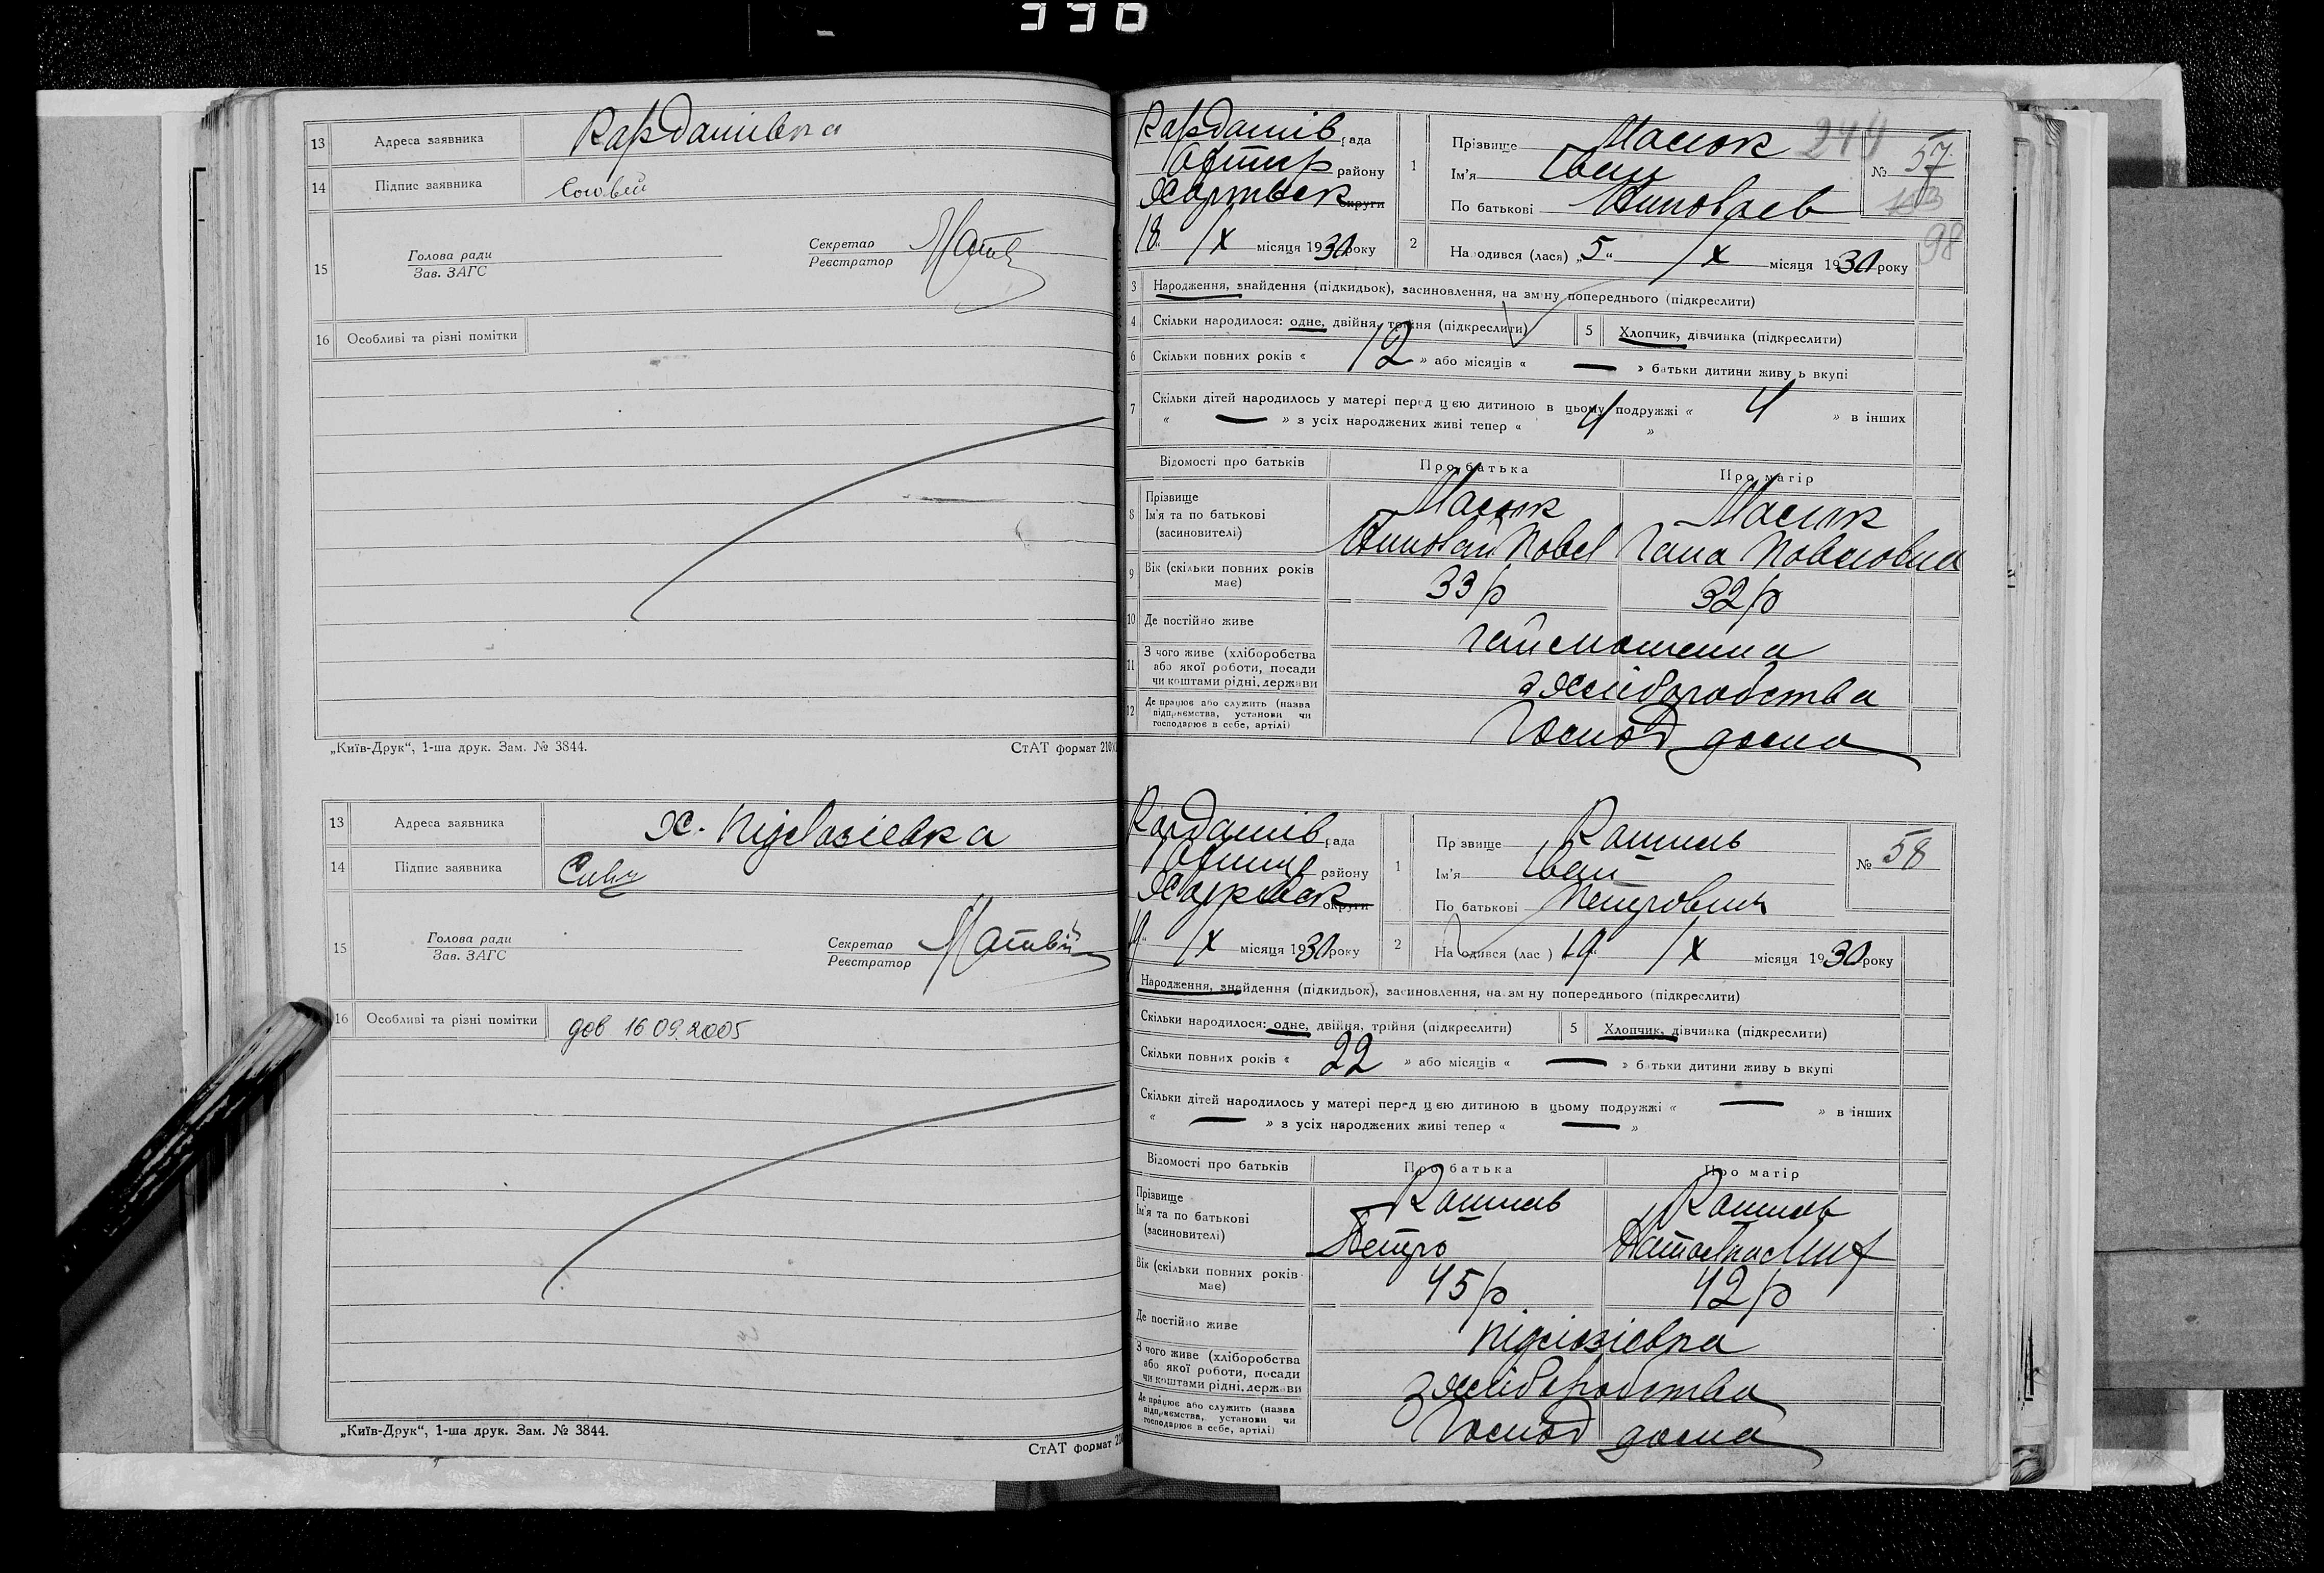 336
13 Адреса заявника Кардашівка
14 Підпис заявника
15 Голова ради
Зав. ЗАГС
Секретар
Реєстратор
16 Особливі та різні помітки
„Київ-Друк“, 1-ша друк. Зам. № 3844.
СтАТ формат 210
13 Адреса заявника
14 Підпис заявника
15 Голова ради
Зав. ЗАГС
Секретар
Реєстратор Матвій
16 Особливі та різні помітки дов 16 09.2005
„Київ-Друк“, 1-ша друк. Зам. № 3844.
СтАТ формат
Кардашів рада
Охтир району
Харківськ округи
18 IX місяця 1930 року
1 Прізвище Масюк 244
№ 57
Ім'я Іван
По батькові
153
98
2 Народився (лася) „5“ IX місяця 1930 року
3 Народження, знайдення (підкидьок), засиновлення, на зміну попереднього (підкреслити)
4 Скільки народилося: одне, двійня, трійня (підкреслити) 5 Хлопчик, дівчинка (підкреслити)
6 Скільки повних років « 12 » або місяців « — » батьки дитини живуть вкупі
7 Скільки дітей народилось у матері перед цією дитиною в цьому подружжі « 4 » в інших
« — » з усіх народжених живі тепер « 4 »
Відомості про батьків Про батька Про матір
8 Прізвище Масюк Масюк
Ім'я та по батькові
(засиновителі)
9 Вік (скільки повних років має) 33 р 32 р
10 Де постійно живе
11 З чого живе (хліборобства
або якої роботи, посади
чи коштами рідні, держави з хліборобства
12 Де працює або служить (назва
підприємства, установи чи
господарює в себе, артілі) Господ дома
Кардашів рада
Охтир району
Харківськ округи
19 IX місяця 1930 року
1 Прізвище
№ 58
Ім'я Іван
По батькові Петрович
2 Народився (лас ) 19 IX місяця 1930 року
Народження, знайдення (підкидьок), засиновлення, на зміну попереднього (підкреслити)
Скільки народилося: одне, двійня, трійня (підкреслити) 5 Хлопчик, дівчинка (підкреслити)
Скільки повних років « 22 » або місяців « — » батьки дитини живуть вкупі
Скільки дітей народилось у матері перед цією дитиною в цьому подружжі « — » в інших
« — » з усіх народжених живі тепер « — »
Відомості про батьків Про батька Про матір
Прізвище
Ім'я та по батькові Петро
(засиновителі)
Вік (скільки повних років має) 45 р 42 р
Де постійно живе
З чого живе (хліборобства
або якої роботи, посади
чи коштами рідні, держави з хліборобства
Де працює або служить (назва
підприємства, установи чи
господарює в себе, артілі) Господ дома